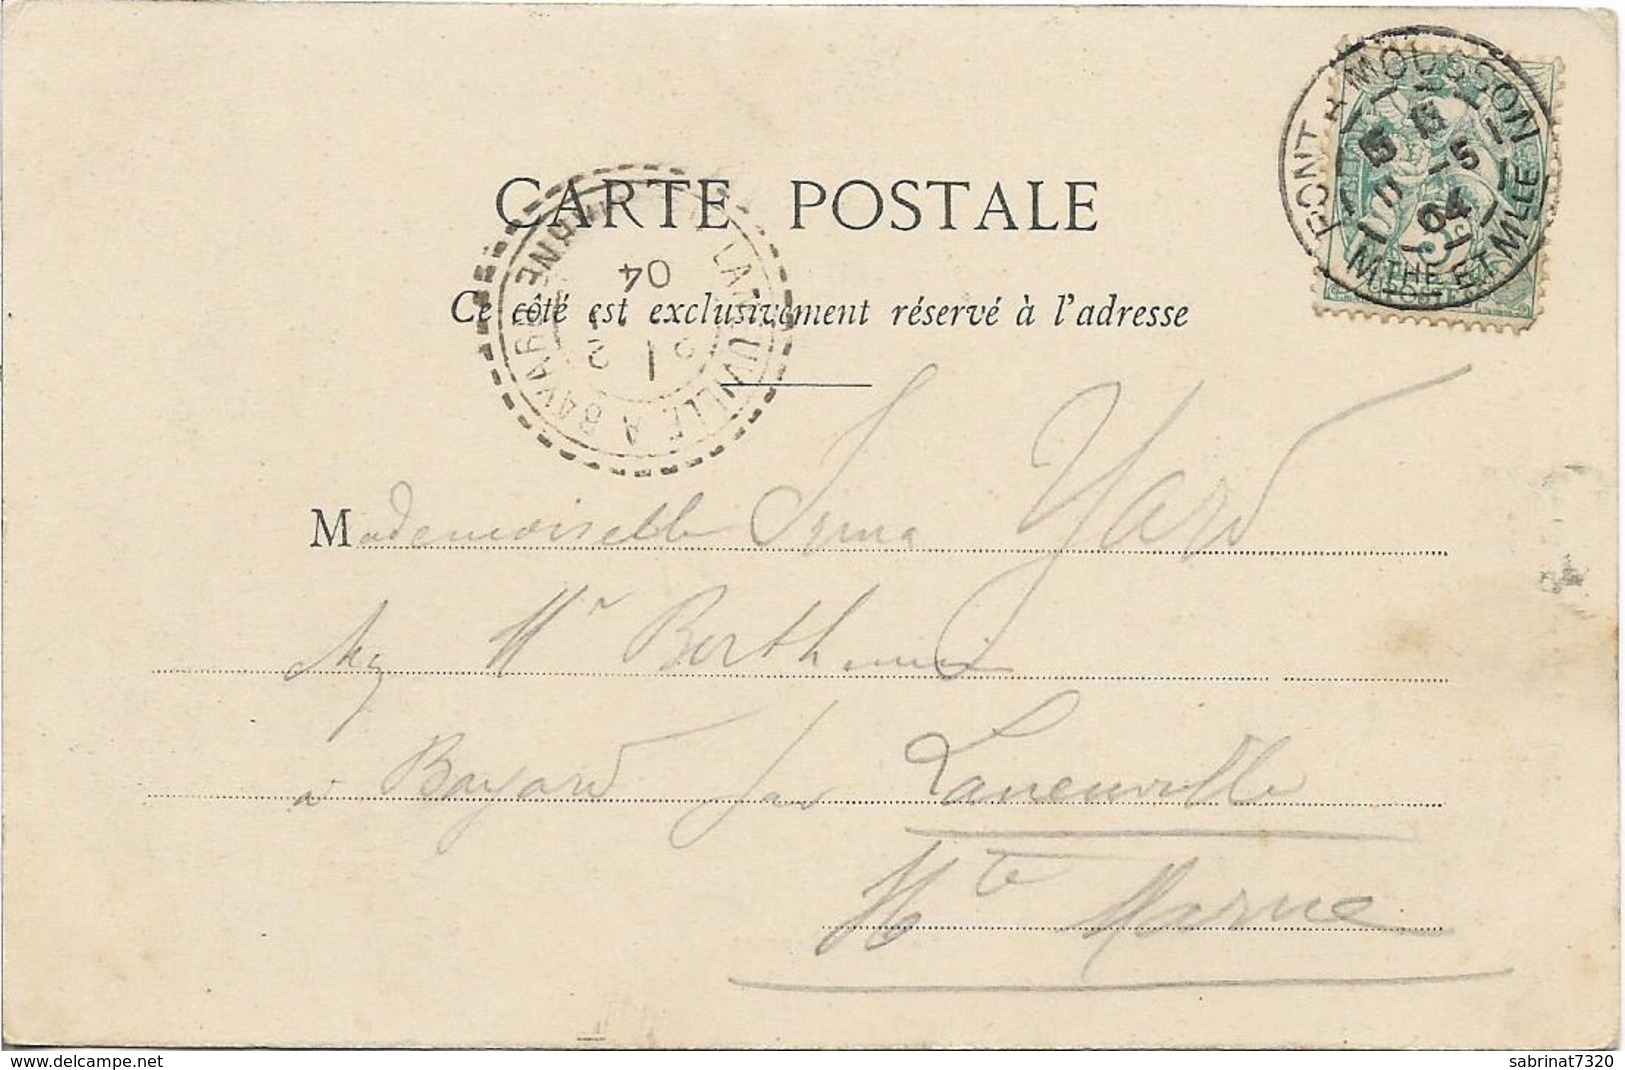 CARTE POSTALE
Ce côté est exclusivement réservé à l'adresse
PONT A MOUSSON
5 -1
04
MTHE ET MLLE
LANEUVILLE A BAYARD
04
Mademoiselle Irma Yard
chez Mr Berthemin
à Bayard par Laneuville
Hte Marne
www.delcampe.net
sabrinat7320